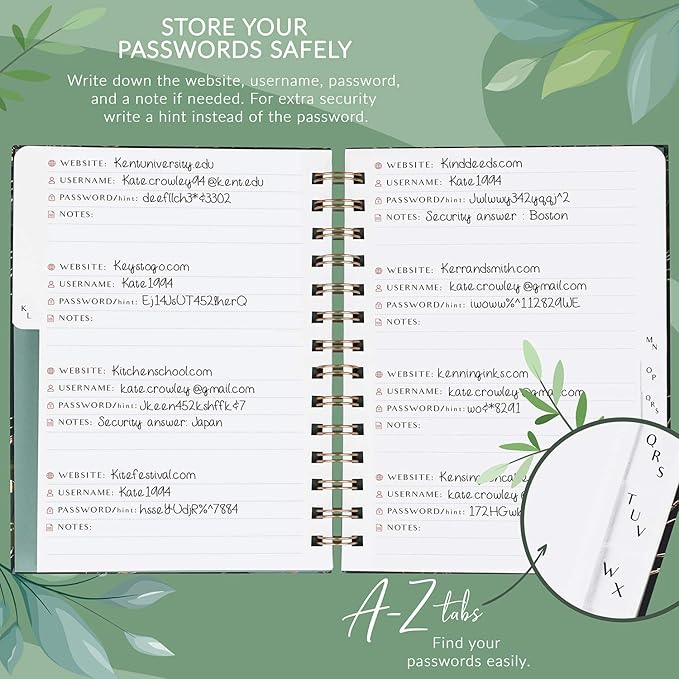 STORE YOUR
PASSWORDS SAFELY
Write down the website, username, password,
and a note if needed. For extra security
write a hint instead of the password.
WEBSITE: Kentuniversity.edu
USERNAME: Katecrowley94@kent.edu
PASSWORD/hint: deefllch3*&3302
NOTES:
WEBSITE: Keystogo.com
USERNAME: Kate1994
PASSWORD/hint:
NOTES:
WEBSITE: Kitchenschool.com
USERNAME: katecrowley@gmail.com
PASSWORD/hint: Jkeen452kshffk&7
NOTES: Security answer: Japan
WEBSITE: Kitefestival.com
USERNAME: Kate1994
PASSWORD/hint:
NOTES:
K
L
WEBSITE: Kinddeeds.com
USERNAME: Kate1994
PASSWORD/hint: Jwlwwy342yqqj^2
NOTES: Security answer : Boston
WEBSITE: Kerrandsmith.com
USERNAME: katecrowley@gmail.com
PASSWORD/hint: iwoww%^112829WE
NOTES:
WEBSITE: kenninginks.com
USERNAME: katecrowley@gmail.com
PASSWORD/hint: wo&*8291
NOTES:
WEBSITE:
USERNAME: katecrowley
PASSWORD/hint:
NOTES:
MN
OP
QRS
QRS
TUV
WX
A-Z tabs
Find your
passwords easily.